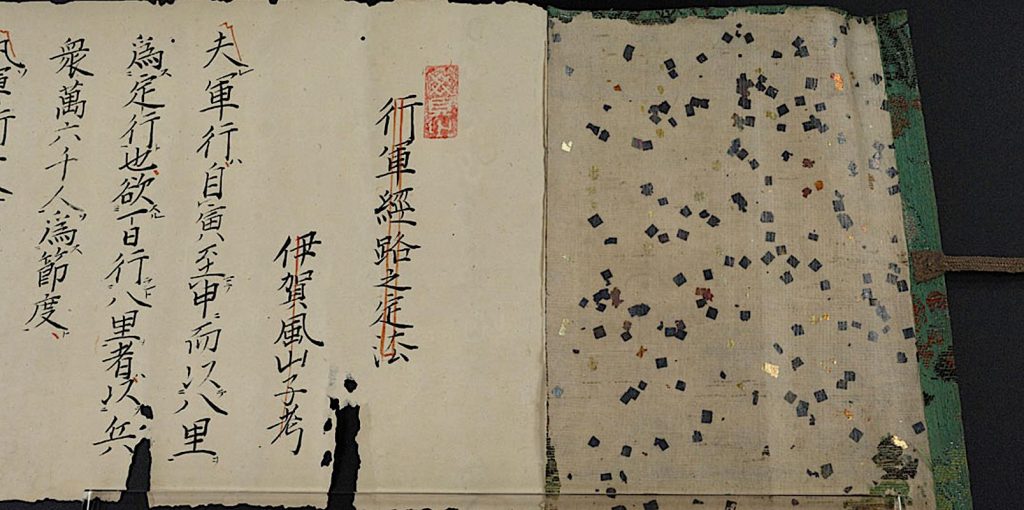 行軍經路之定法
伊賀風山子考
夫軍行自寅至申而以八里
爲定行也欲一日行八里者以兵
衆萬六千人爲節度
凡軍行